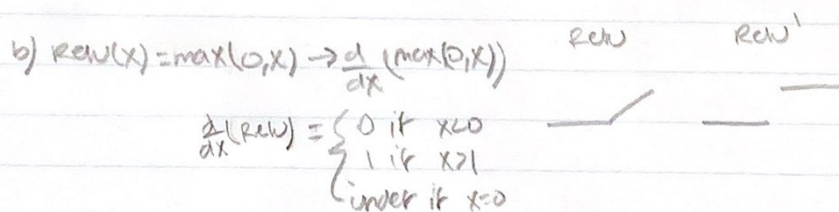 b) ReLU(x) = max(0,x) → d/dx (max(0,x)) ReLU ReLU'
d/dx (ReLU) = { 0 if x<0
1 if x>1
undef if x=0